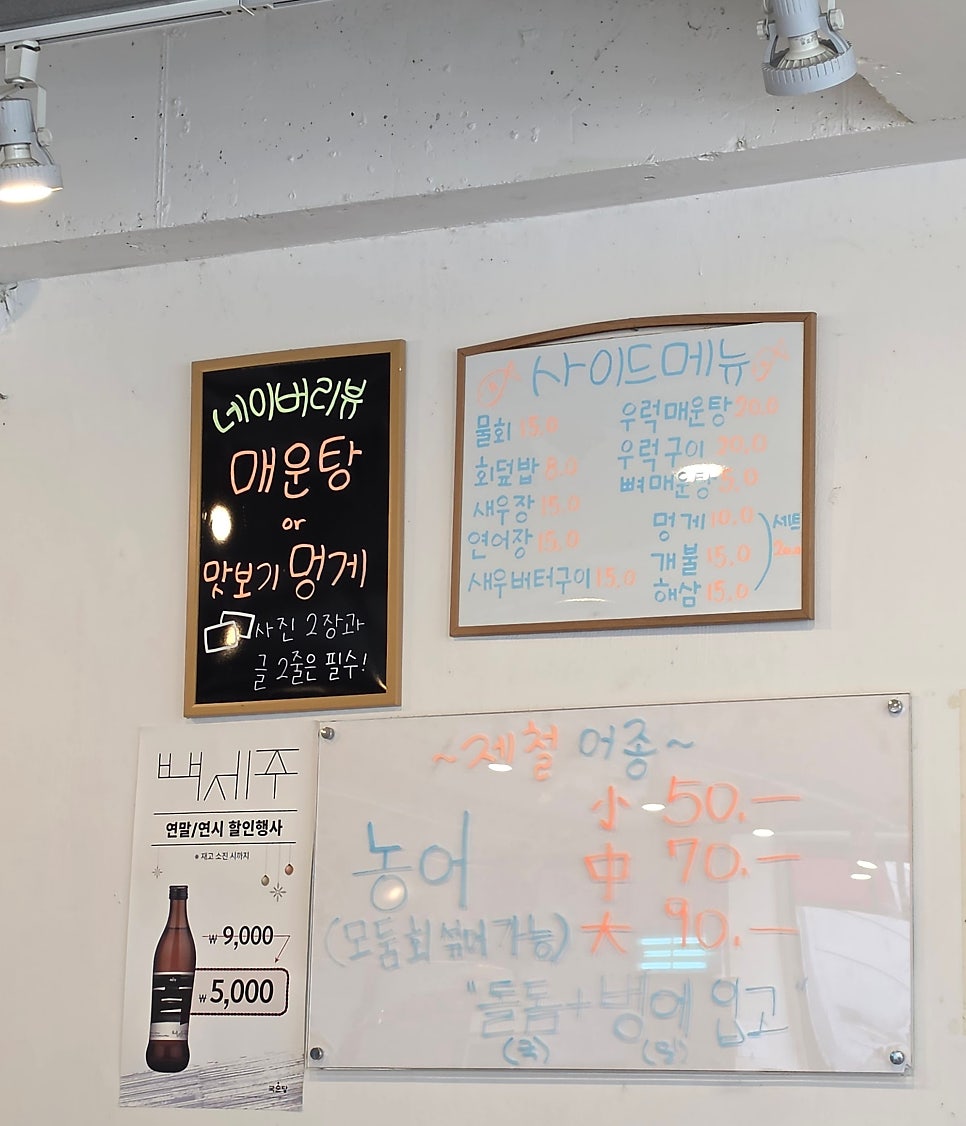 네이버리뷰
매운탕
or
맛보기 멍게
사진 2장과
글 2줄은 필수!
사이드메뉴
물회 15.0
회덮밥 8.0
새우장 15.0
연어장 15.0
새우버터구이 15.0
우럭매운탕 20.0
우럭구이 20.0
뼈매운탕 5.0
멍게 10.0
개불 15.0
해삼 15.0
세트
백세주
연말/연시 할인행사
재고 소진 시까지
₩9,000
₩5,000
국순당
~제철 어종~
농어
(모둠회 섞어 가능)
小 50.-
中 70.-
大 90.-
"돌돔+병어 입고"